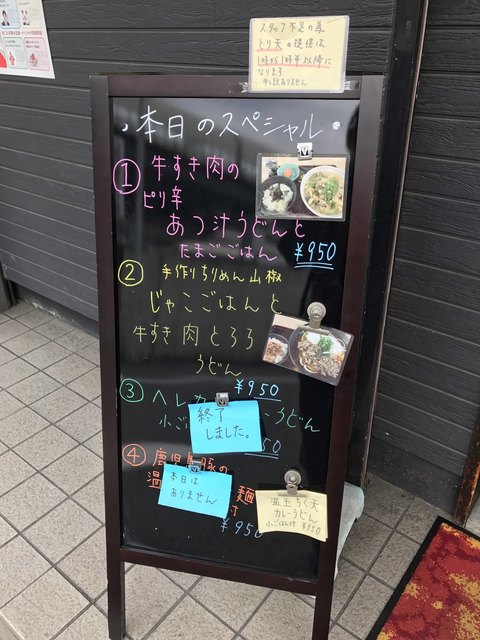 スタッフ不足の為
とり天の提供は
1時から1時半以降に
なります
申し訳ありません
・本日のスペシャル・
① 牛すき肉の
ピリ辛
あつ汁うどんと
たまごごはん ¥950
② 手作りちりめん山椒
じゃこごはんと
牛すき肉とろろ
うどん
¥950
③ ヘレカ
小ご うどん
終了
しました。
50
④ 鹿児島豚の
温 麺
付
本日は
ありません
¥950
温玉ちく天
カレーうどん
小ごはん付 ¥950